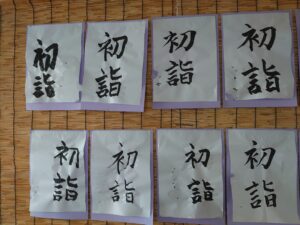 初詣
初詣
初詣
初詣
初詣
初詣
初詣
初詣